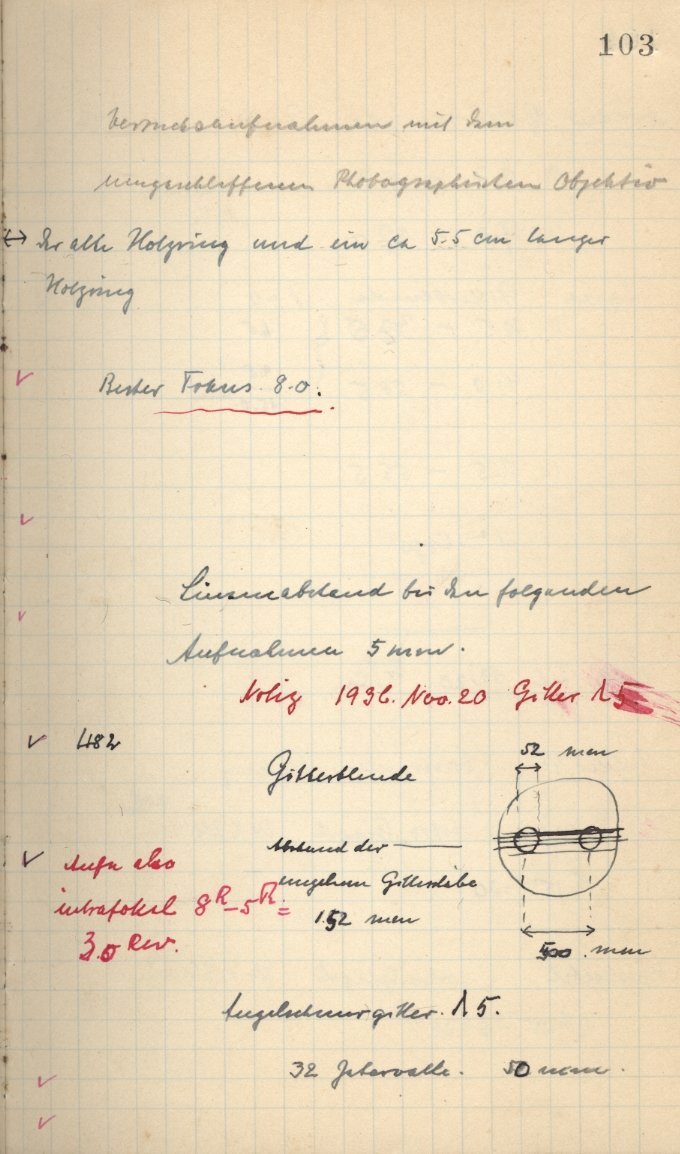 103
Versuchsaufnahmen mit dem
neugeschliffenen Photographischen Objektiv
↔ Der alte Holzring und ein ca 5.5 cm langer
Holzring
✓ Bester Fokus 8.0.
✓
Linsenabstand bei den folgenden
✓
Aufnahmen 5 mm.
Notiz 1936. Nov. 20 Gitter 15
✓ 482
52 mm
Gitterblende
Abstand der
✓ Aufn also
einzelnen Gitterstäbe
intrafokal 8R-5R=
1.52 mm
3.0 Rev.
500 mm
Angelschnurgitter. 15.
32 Intervalle. 50 mm.
✓
✓